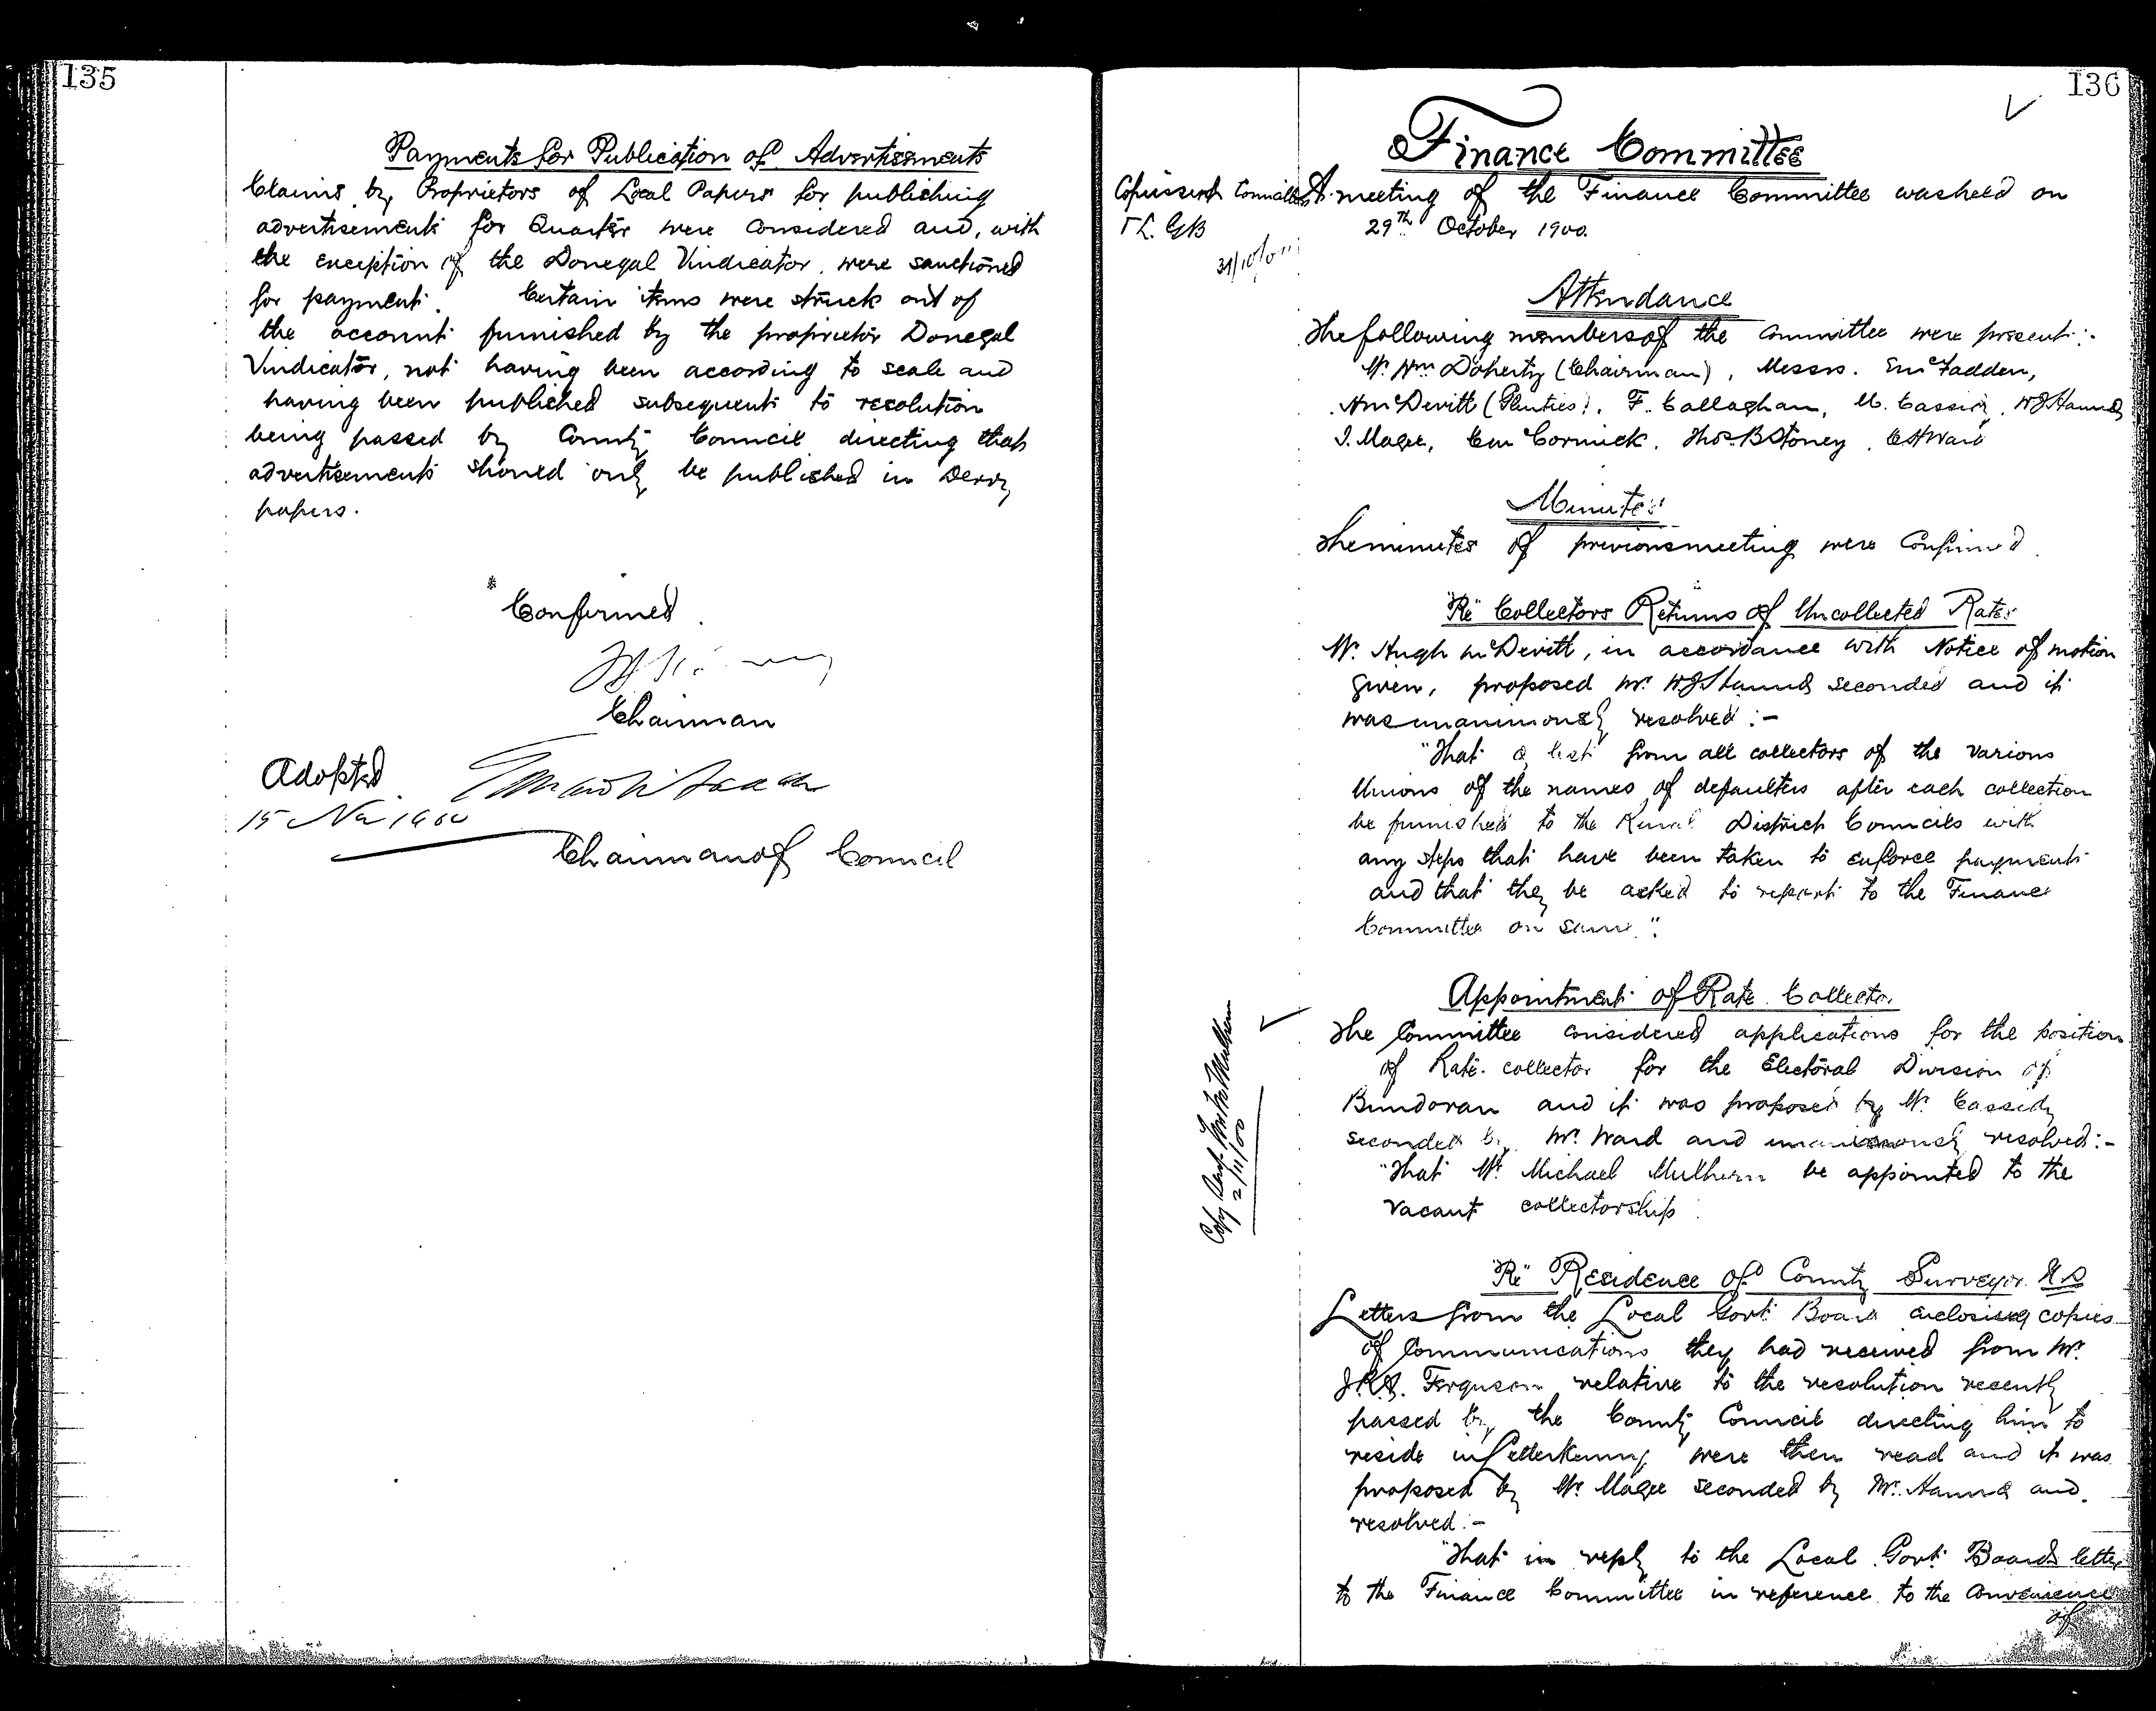 135
Payments for Publication of Advertisements
Claims by Proprietors of Local Papers for publishing
advertisements for Quarter were considered and, with
the exception of the Donegal Vindicator, were sanctioned
for payment. Certain items were struck out of
the account furnished by the proprietor Donegal
Vindicator, not having been according to scale and
having been published subsequent to resolution
being passed by County Council directing that
advertisements should only be published in Derry
papers.
Confirmed
Chairman
Adopted
15 Nov 1900
Chairman of Council
136
Finance Committee
Copies sent Councillors
& L.G.B
31/10/00
A meeting of the Finance Committee was held on
29th October 1900.
Attendance
The following members of the Committee were present:-
Mr. Wm Doherty (Chairman), Messrs. E McFadden,
H McDevitt (Glenties), F. Callaghan, M. Cassidy, W J Hanna
J. Magee, C McCormick, Thos. B Stoney, C H Ward
Minutes
The minutes of previous meeting were Confirmed.
"Re" Collectors Returns of Uncollected Rates
Mr. Hugh McDevitt, in accordance with Notice of motion
given, proposed Mr. W J Hanna seconded and it
was unanimously resolved :-
"That a list from all collectors of the various
Unions of the names of defaulters after each collection
be furnished to the Rural District Councils with
any steps that have been taken to enforce payment
and that they be asked to report to the Finance
Committee on same".
Appointment of Rate Collector
The Committee considered applications for the position
of Rate collector for the Electoral Division of
Bundoran and it was proposed by Mr. Cassidy
seconded by Mr. Ward and unanimously resolved:-
"That Mr. Michael Mulhern be appointed to the
vacant collectorship
Copy sent Mulhern
2/11/00
"Re" Residence of County Surveyor N D
Letters from the Local Govt. Board enclosing copies
of Communications they had received from Mr.
Ferguson relative to the resolution recently
passed by the County Council directing him to
reside in Letterkenny were then read and it was
proposed by Mr. Magee seconded by Mr. Hanna and
resolved :-
"That in reply to the Local Govt. Boards letter
to the Finance Committee in reference to the convenience
of